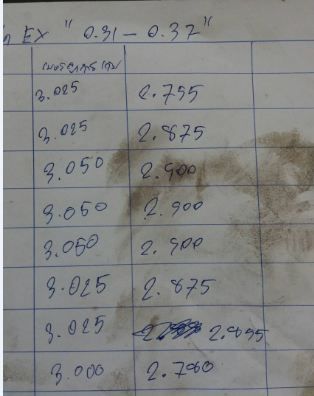 EX "0.31 - 0.37"
3.025 2.755
3.025 2.875
3.050 2.900
3.050 2.900
3.050 2.900
3.025 2.875
3.025 2.855
3.000 2.780